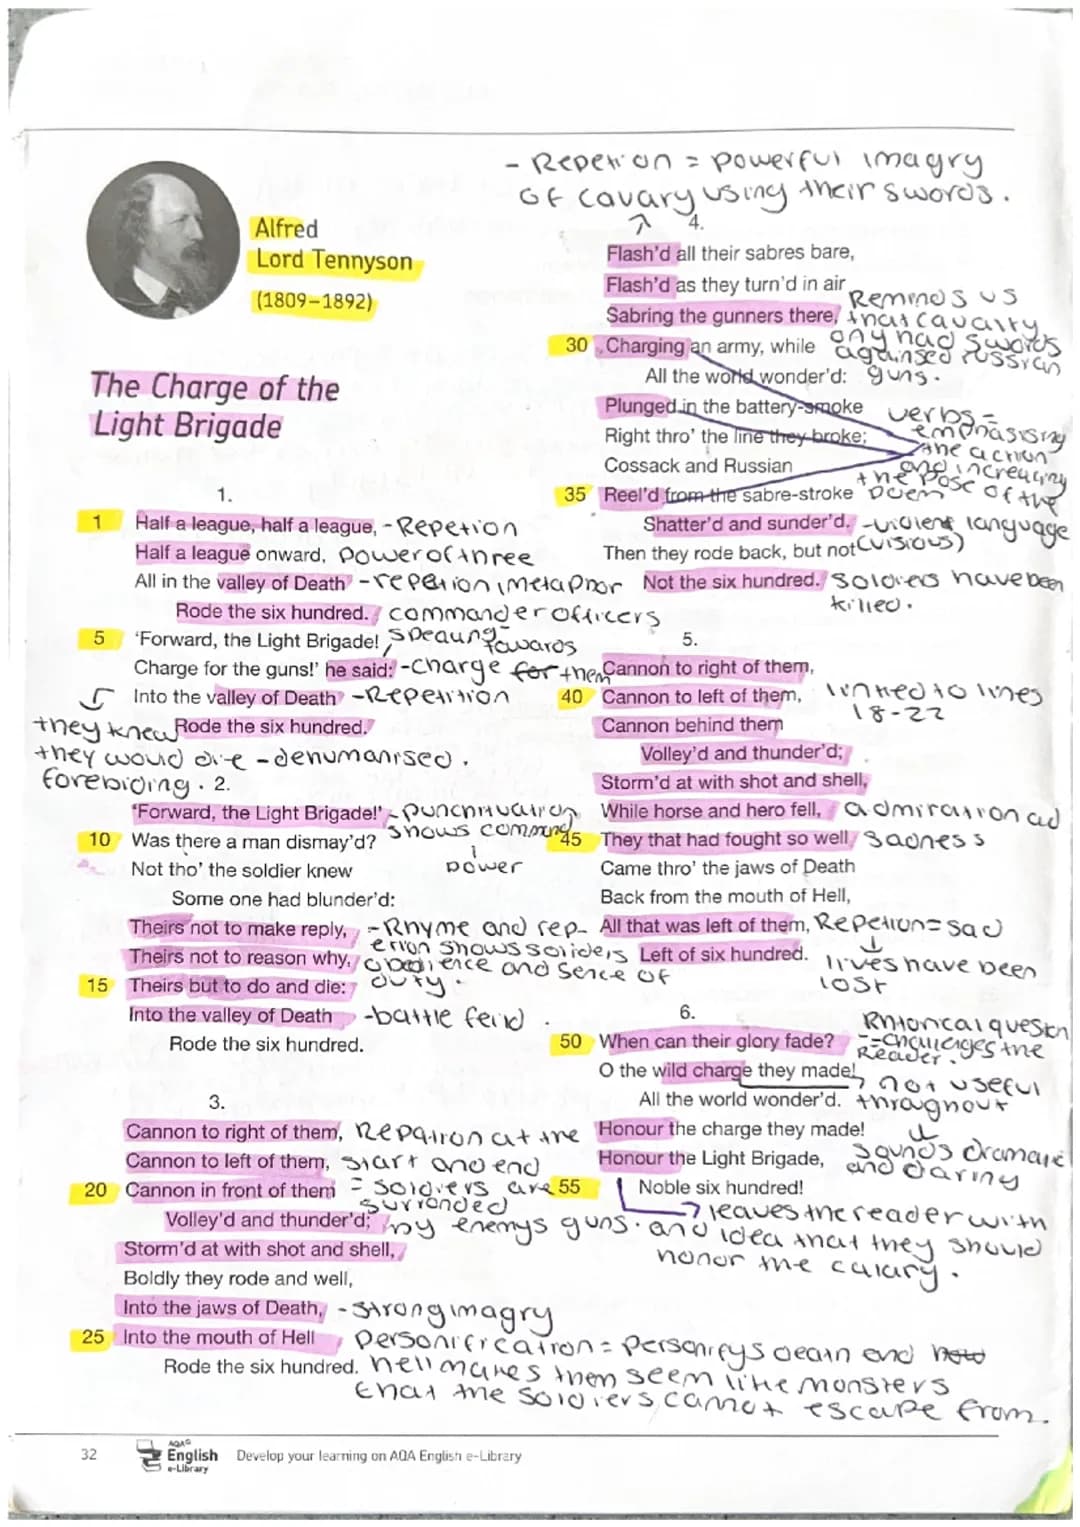 Alfred
Lord Tennyson
(1809–1892)
The Charge of the
Light Brigade
1.
1 Half a league, half a league, -Repetion
Half a league onward, power of three
All in the valley of Death -repetion, metaphor
Rode the six hundred. commander officers
5 'Forward, the Light Brigade! speaking towards
Charge for the guns!' he said: -charge for them
Into the valley of Death -Repetition
Rode the six hundred.
they knew
they would die -denumanised.
forebiding.
2.
'Forward, the Light Brigade!' -punchtuation
shows command
power
10 Was there a man dismay'd?
Not tho' the soldier knew
Some one had blunder'd:
Theirs not to make reply, -Rhyme and rep-
Theirs not to reason why, etion shows soliders
15 Theirs but to do and die: obedience and sence of
duty.
Into the valley of Death -battle feild.
Rode the six hundred.
3.
Cannon to right of them, Repation at the
Cannon to left of them, start and end
20 Cannon in front of them = soldiers are
surronded
Volley'd and thunder'd; by enemys guns.
Storm'd at with shot and shell,
Boldly they rode and well,
Into the jaws of Death, -strong imagry
25 Into the mouth of Hell personification = personifys death and
Rode the six hundred. hell makes them seem like monsters
that the soldiers cannot escape from.
- Repetion = powerful imagry
of cavary using their swords.
4.
Flash'd all their sabres bare,
Flash'd as they turn'd in air
Sabring the gunners there,
30 Charging an army, while
All the world wonder'd:
Reminds us
that cavalry
ony had swords
against russian
guns.
Plunged in the battery-smoke
Right thro' the line they broke;
Cossack and Russian
35 Reel'd from the sabre-stroke
verbs =
emphasising
the action
and increacing
the pose of the
poem
Shatter'd and sunder'd. -violent language
(visious)
Then they rode back, but not
Not the six hundred. soldiers have been
killed.
5.
Cannon to right of them,
40 Cannon to left of them, linked to lines
18-22
Cannon behind them
Volley'd and thunder'd;
Storm'd at with shot and shell,
While horse and hero fell, admiration ad
45 They that had fought so well sadness
Came thro' the jaws of Death
Back from the mouth of Hell,
All that was left of them, Repetion= sad
Left of six hundred. lives have been
lost
6.
50 When can their glory fade?
Rhtorical question
-=challenges the
Reader.
O the wild charge they made! not useful
All the world wonder'd. throughout
Honour the charge they made!
Honour the Light Brigade,
sounds dramatic
and daring
55 Noble six hundred!
leaves the reader with
and idea that they should
honor the calary.
32
AQA
English
e-Library
Develop your learning on AQA English e-Library